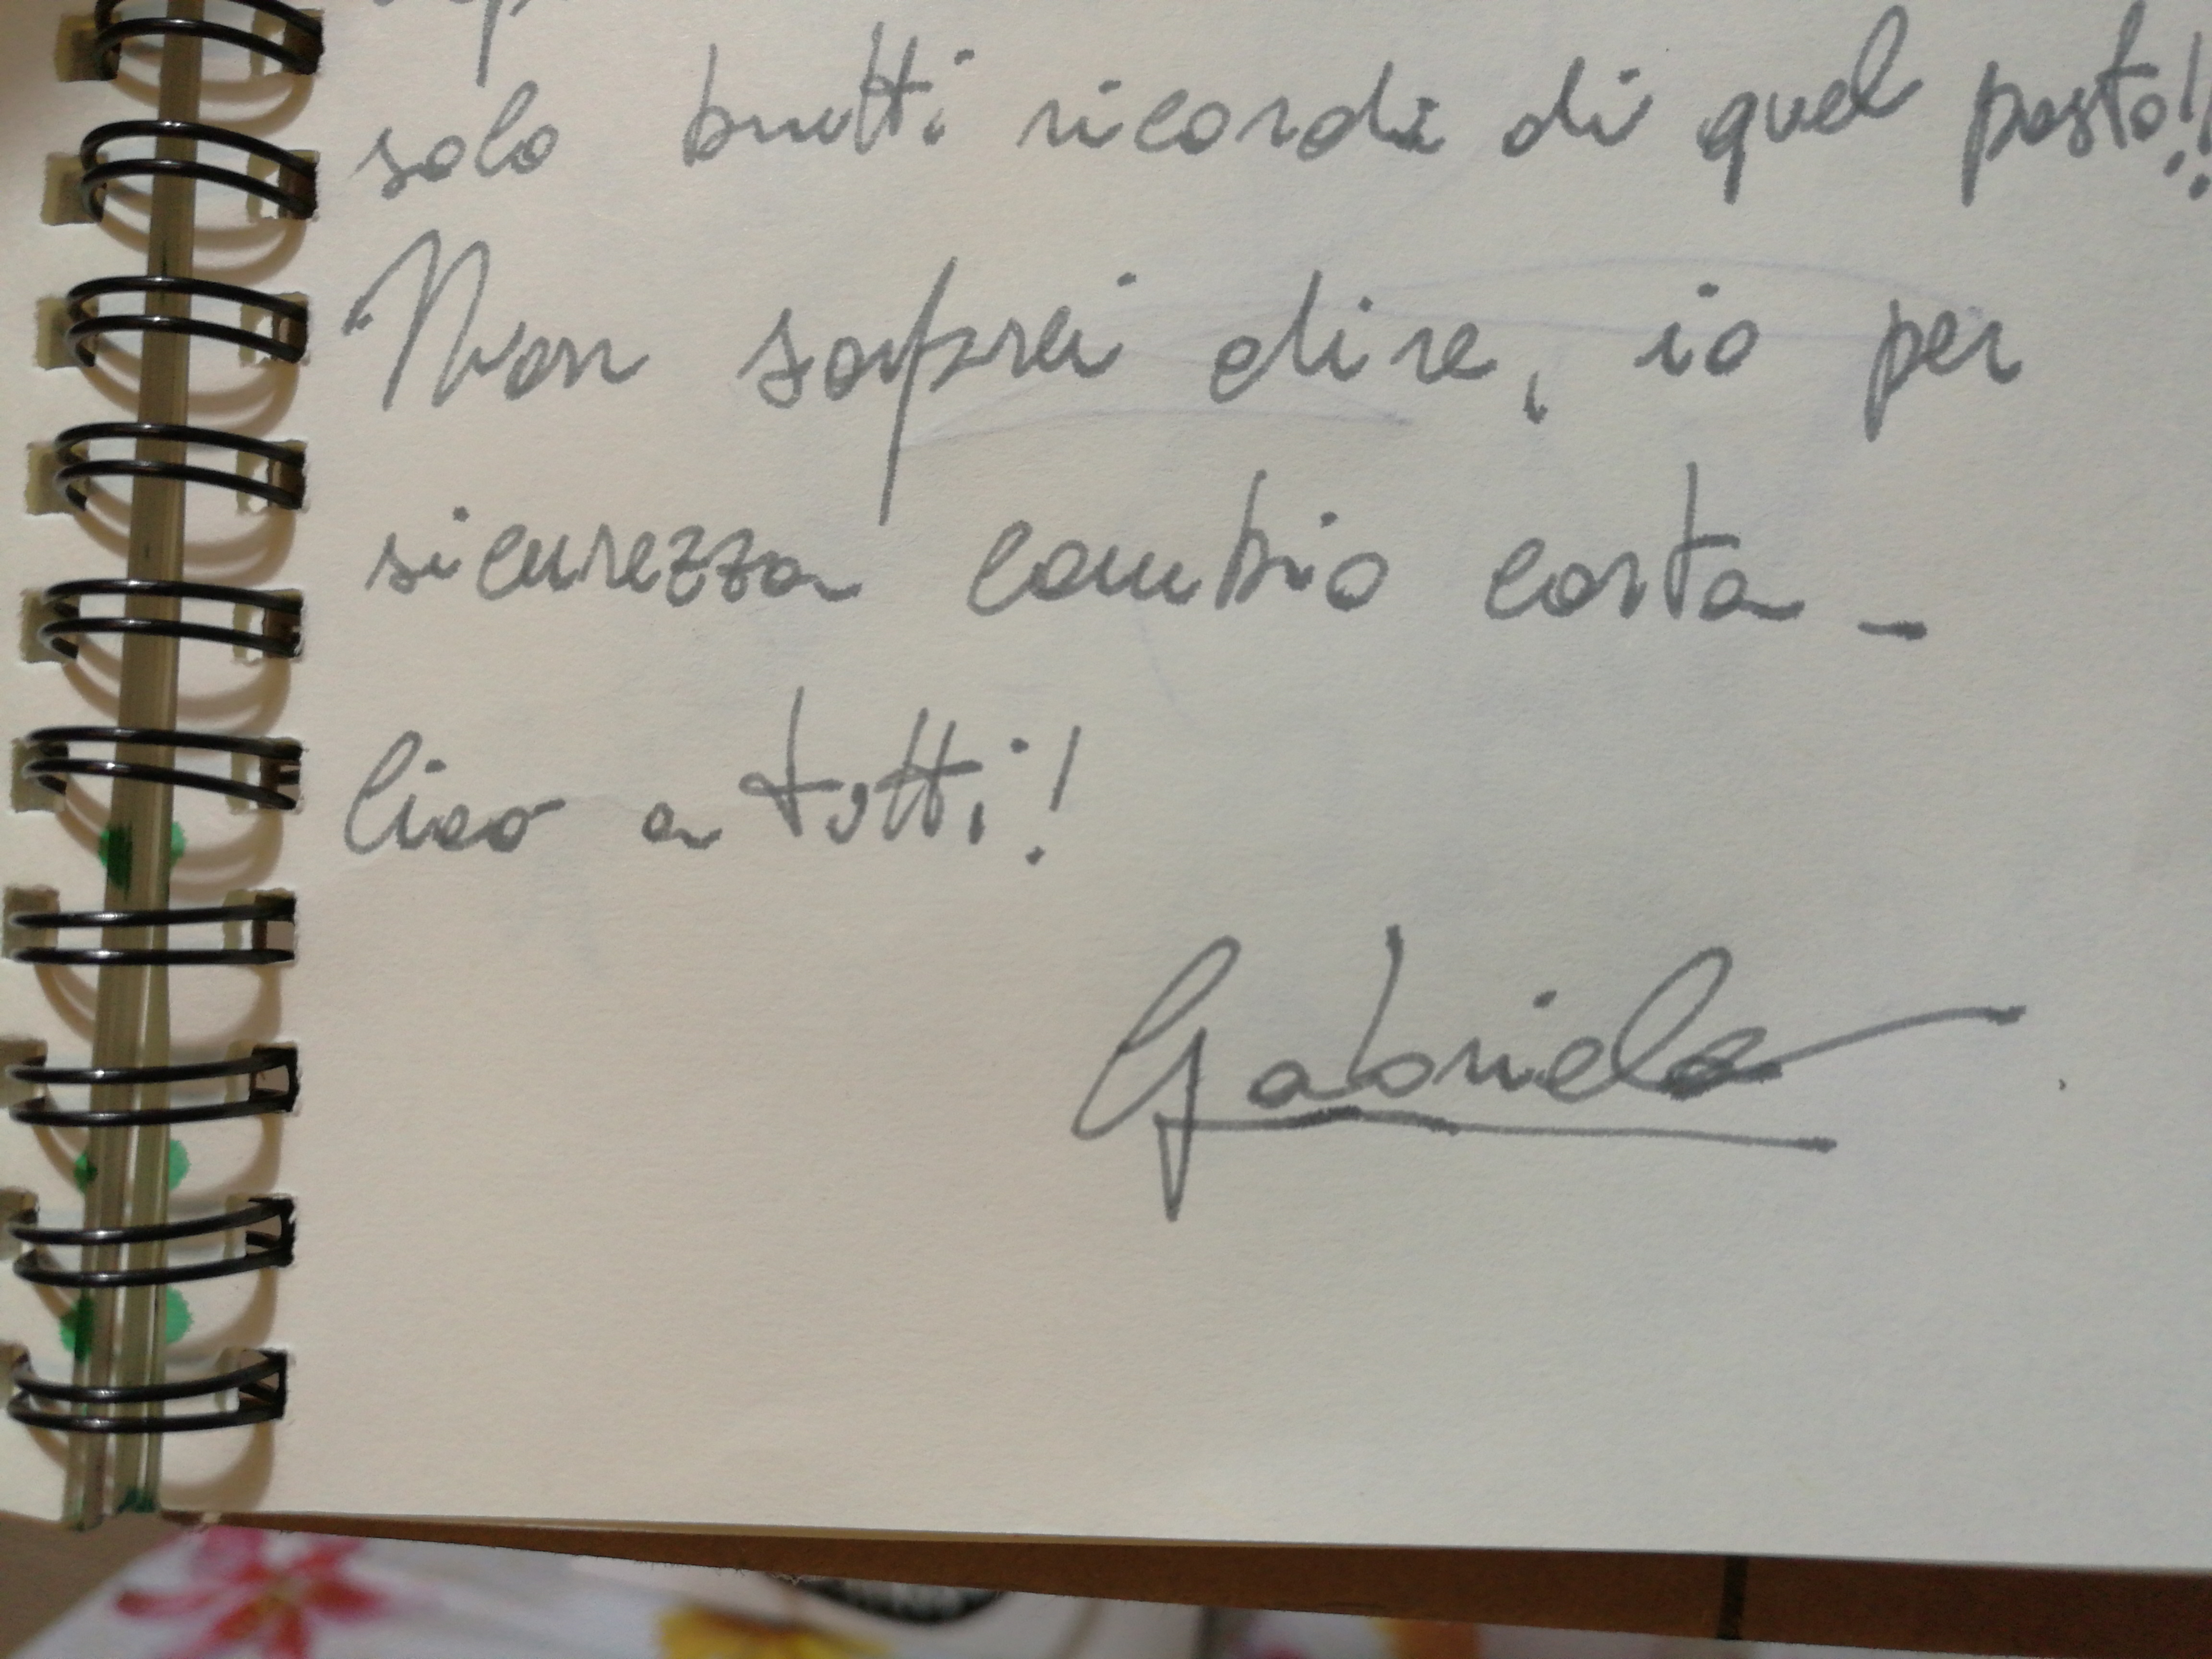 solo brutti ricordi di quel posto!!
Non saprei dire, io per
sicurezza cambio carta –
Ciao a tutti!
Gabriele